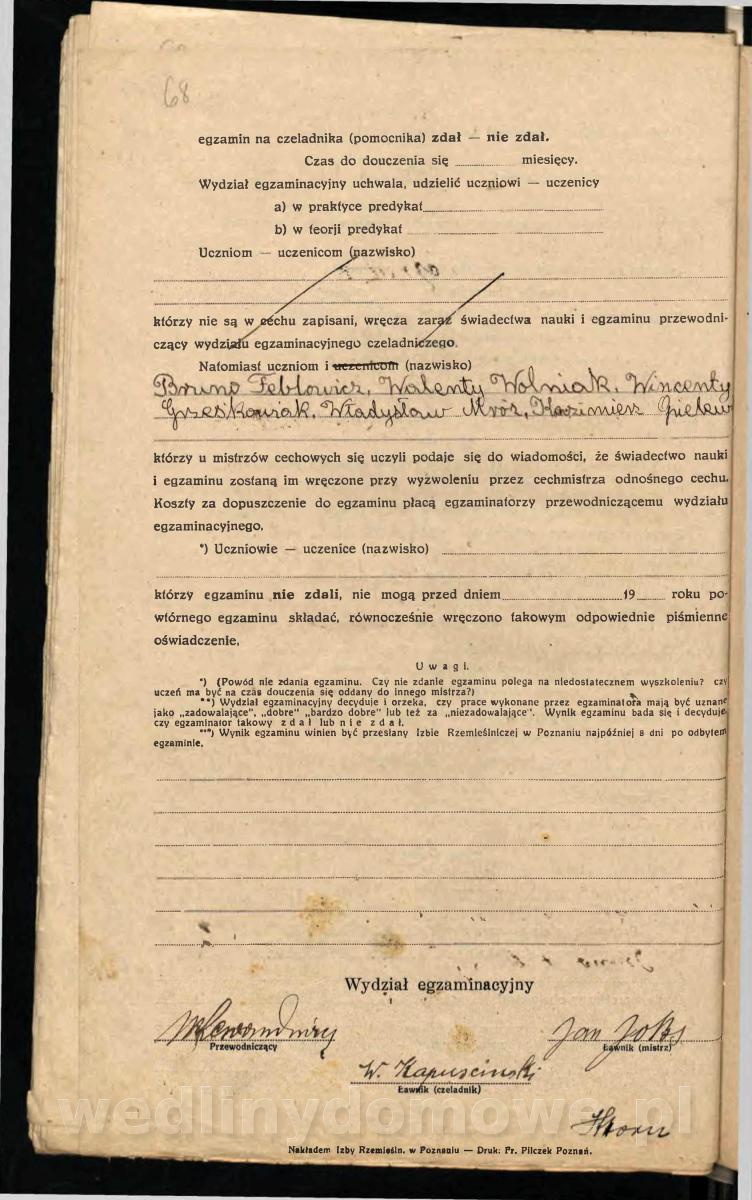 68
egzamin na czeladnika (pomocnika) zdał — nie zdał.
Czas do douczenia się miesięcy.
Wydział egzaminacyjny uchwala, udzielić uczniowi — uczenicy
a) w praktyce predykat
b) w teorji predykat
Uczniom — uczenicom (nazwisko)
którzy nie są w cechu zapisani, wręcza zaraz świadectwa nauki i egzaminu przewodni-
czący wydziału egzaminacyjnego czeladniczego.
Natomiast uczniom i uczenicom (nazwisko)
Bruno Feblowicz, Walenty Wolniak, Wincenty
Grześkowiak, Władysław Mróz, Kazimierz
którzy u mistrzów cechowych się uczyli podaje się do wiadomości, że świadectwo nauki
i egzaminu zostaną im wręczone przy wyzwoleniu przez cechmistrza odnośnego cechu.
Koszty za dopuszczenie do egzaminu płacą egzaminatorzy przewodniczącemu wydziału
egzaminacyjnego.
*) Uczniowie — uczenice (nazwisko)
którzy egzaminu nie zdali, nie mogą przed dniem 19 roku po-
wtórnego egzaminu składać, równocześnie wręczono takowym odpowiednie piśmienne
oświadczenie.
Uwagi.
*) (Powód nie zdania egzaminu. Czy nie zdanie egzaminu polega na niedostatecznem wyszkoleniu? czy
uczeń ma być na czas douczenia się oddany do innego mistrza?)
**) Wydział egzaminacyjny decyduje i orzeka, czy prace wykonane przez egzaminatora mają być uznane
jako „zadowalające", „dobre" „bardzo dobre" lub też za „niezadowalające". Wynik egzaminu bada się i decyduje,
czy egzaminator takowy zdał lub nie zdał.
***) Wynik egzaminu winien być przesłany Izbie Rzemieślniczej w Poznaniu najpóźniej 8 dni po odbytem
egzaminie.
Wydział egzaminacyjny
Przewodniczący
Jan
Ławnik (mistrz)
W. Kapuscinski
Ławnik (czeladnik)
wedlinydomowe.pl
Nakładem Izby Rzemieśln. w Poznaniu — Druk: Fr. Pilczek Poznań.